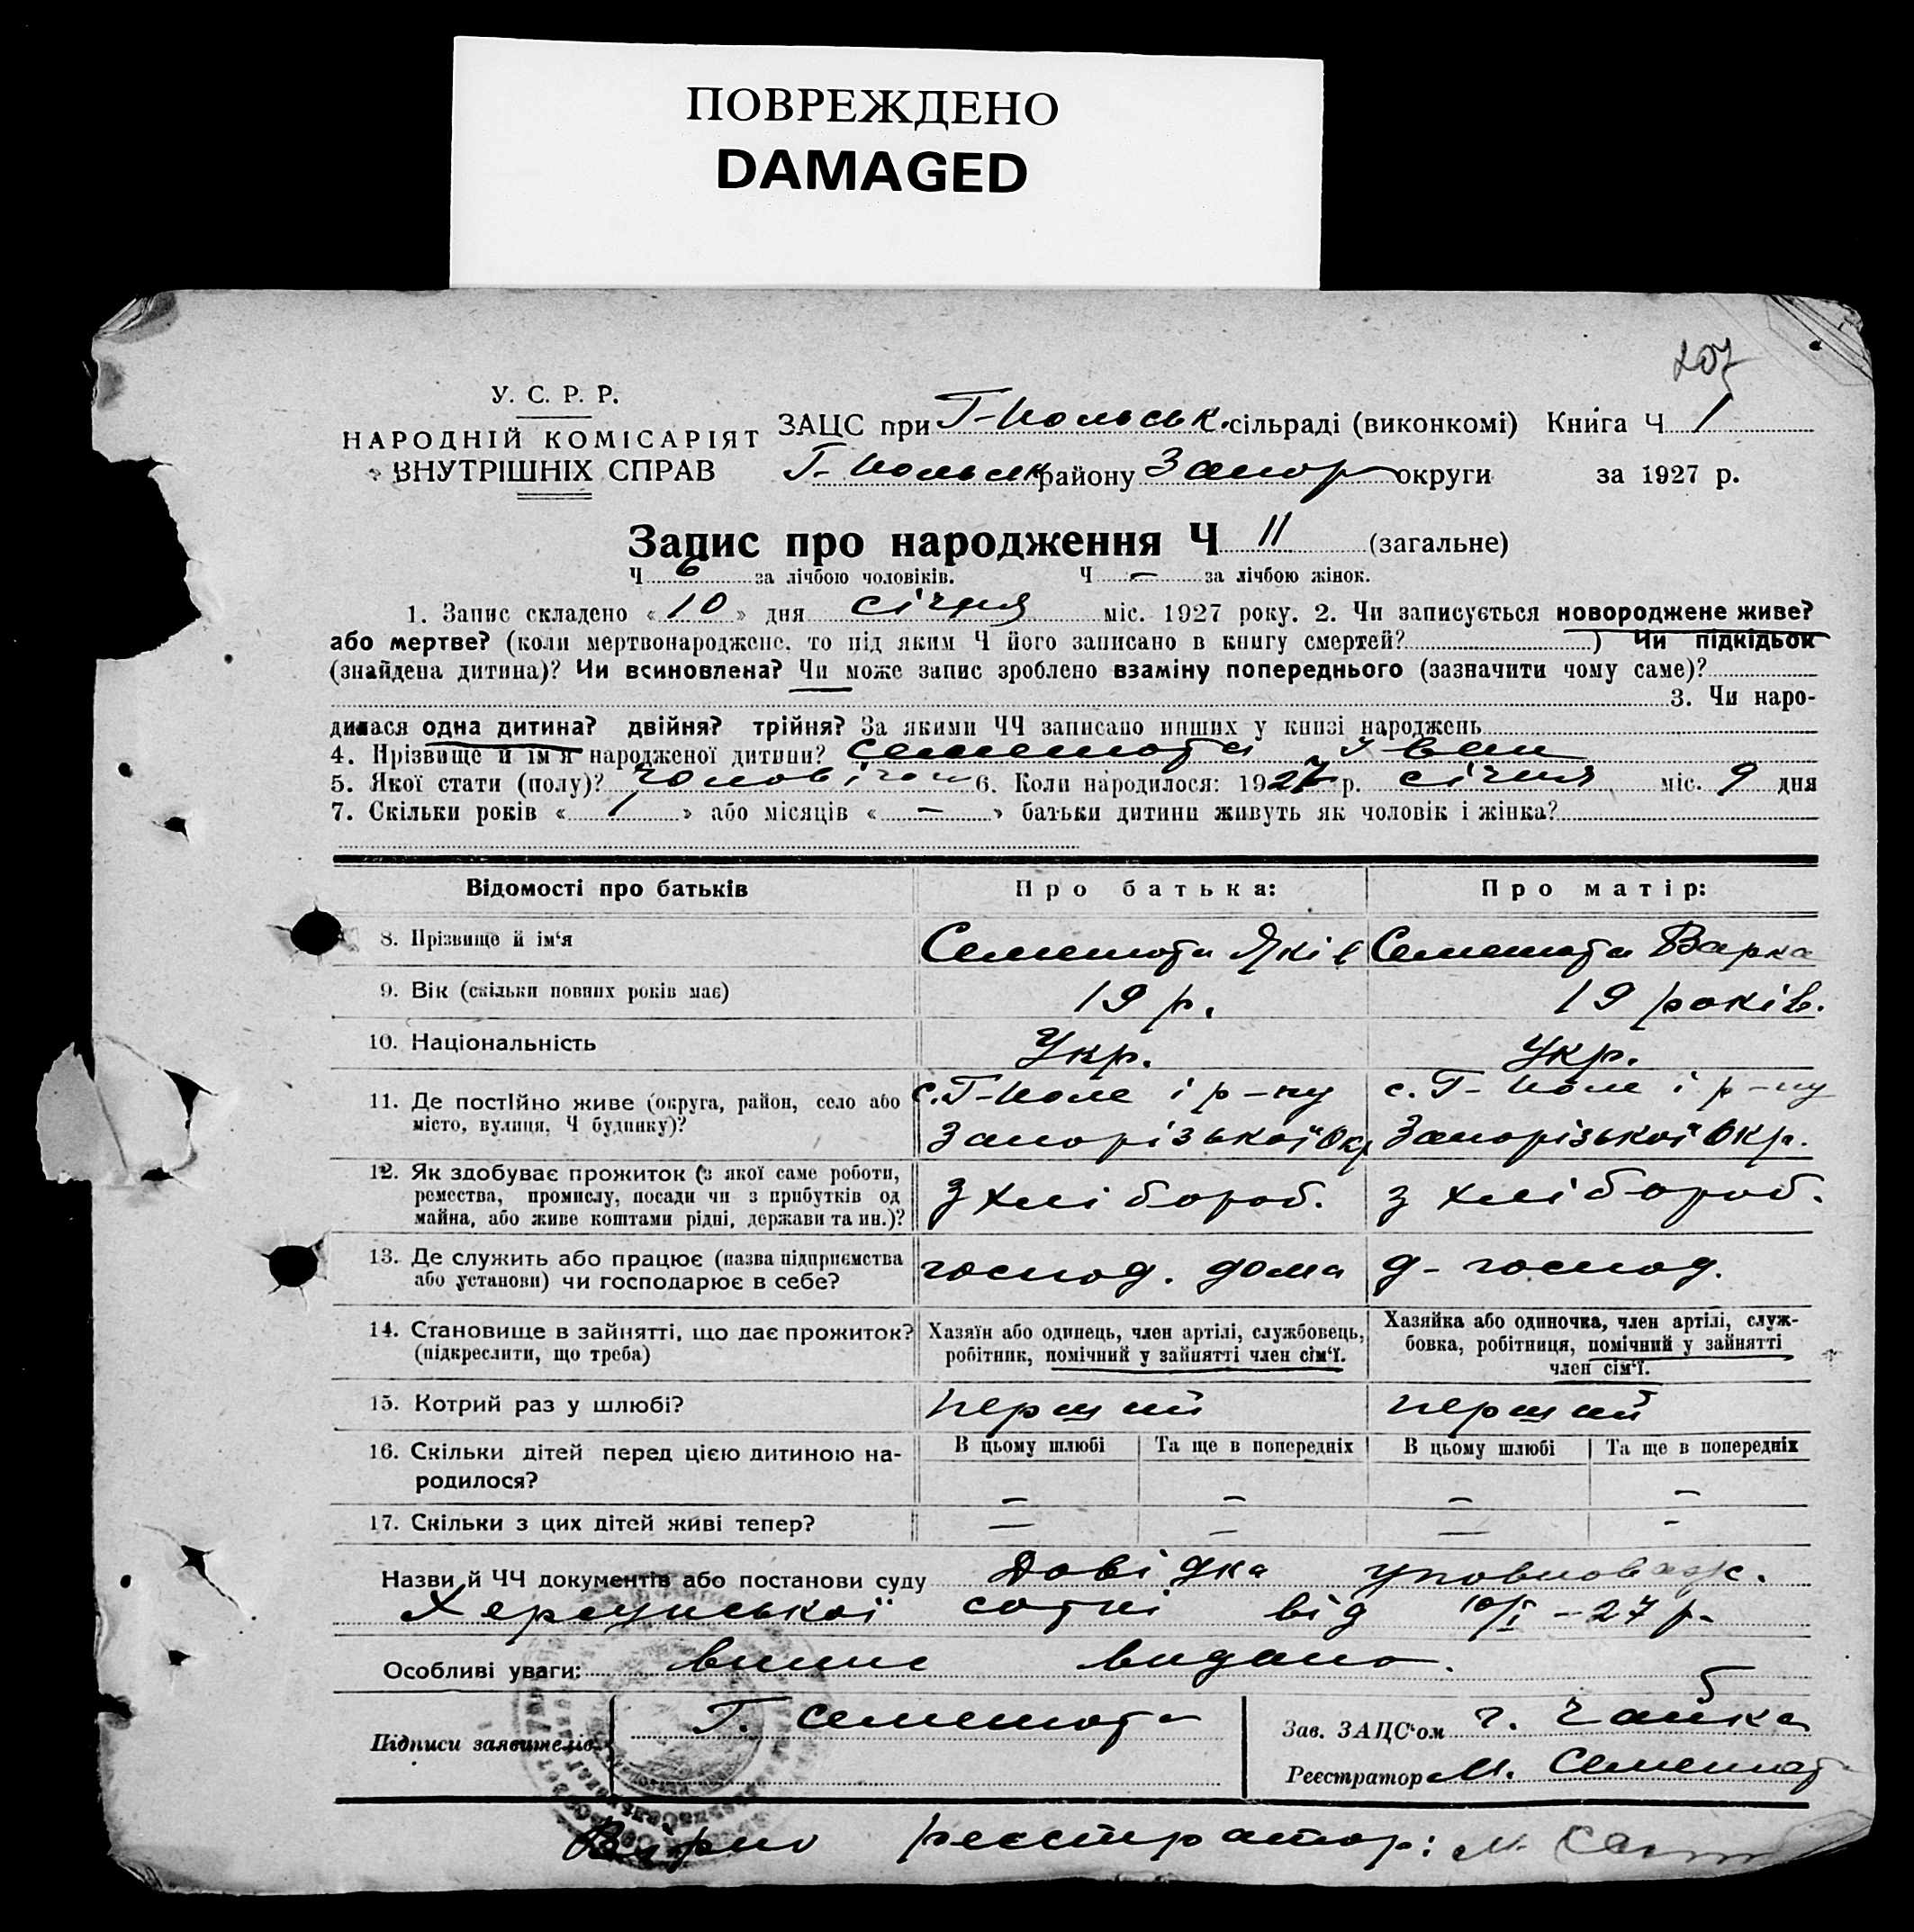 ПОВРЕЖДЕНО
DAMAGED
207
У. С. Р. Р.
НАРОДНІЙ КОМІСАРІЯТ
ВНУТРІШНІХ СПРАВ
ЗАЦС при Г-Польськ. сільраді (виконкомі) Книга Ч 1
Г-Польськ району Запор округи за 1927 р.
Запис про народження Ч 11 (загальне)
Ч 6 за лічбою чоловіків. Ч — за лічбою жінок.
1. Запис складено «10» дня січня міс. 1927 року. 2. Чи записується новороджене живе?
або мертве? (коли мертвонароджене, то під яким Ч його записано в книгу смертей? ) Чи підкідьок
(знайдена дитина)? Чи всиновлена? Чи може запис зроблено взаміну попереднього (зазначити чому саме)?
3. Чи наро-
дилася одна дитина? двійня? трійня? За якими ЧЧ записано инших у книзі народжень
4. Прізвище й ім'я народженої дитини? Семешота Іван
5. Якої стати (полу)? чоловічої 6. Коли народилося: 1927 р. січня міс. 9 дня
7. Скільки років «1» або місяців «—» батьки дитини живуть як чоловік і жінка?
Відомості про батьків Про батька: Про матір:
8. Прізвище й ім'я Семешота Яків Семешота Варка
9. Вік (скільки повних років має) 19 р. 19 років.
10. Національність Укр. Укр.
11. Де постійно живе (округа, район, село або місто, вулиця, Ч будинку)? с. Г-Поле і р-ну Запорізької Окр с. Г-Поле і р-ну Запорізької Окр.
12. Як здобуває прожиток (з якої саме роботи, ремества, промислу, посади чи з прибутків од майна, або живе коштами рідні, держави та ин.)? З хлібороб. З хлібороб.
13. Де служить або працює (назва підприємства або установи) чи господарює в себе? господ. дома д-господ.
14. Становище в зайнятті, що дає прожиток? (підкреслити, що треба) Хазяїн або одинець, член артілі, службовець, робітник, помічний у зайнятті член сім'ї. Хазяйка або одиночка, член артілі, служ-бовка, робітниця, помічний у зайнятті член сім'ї.
15. Котрий раз у шлюбі? перший перший
16. Скільки дітей перед цією дитиною на-родилося? В цьому шлюбі — Та ще в попередніх — В цьому шлюбі — Та ще в попередніх —
17. Скільки з цих дітей живі тепер? — — — -
Назви й ЧЧ документів або постанови суду Довідка уповноваж.
Херсунської сотні від 10/I – 27 р.
Особливі уваги: випис видано.
Підписи заявителів Г. Семешота
Зав. ЗАЦС'ом Г. Чайка
Реєстратор М. Семешот
Вірно реєстратор: М.